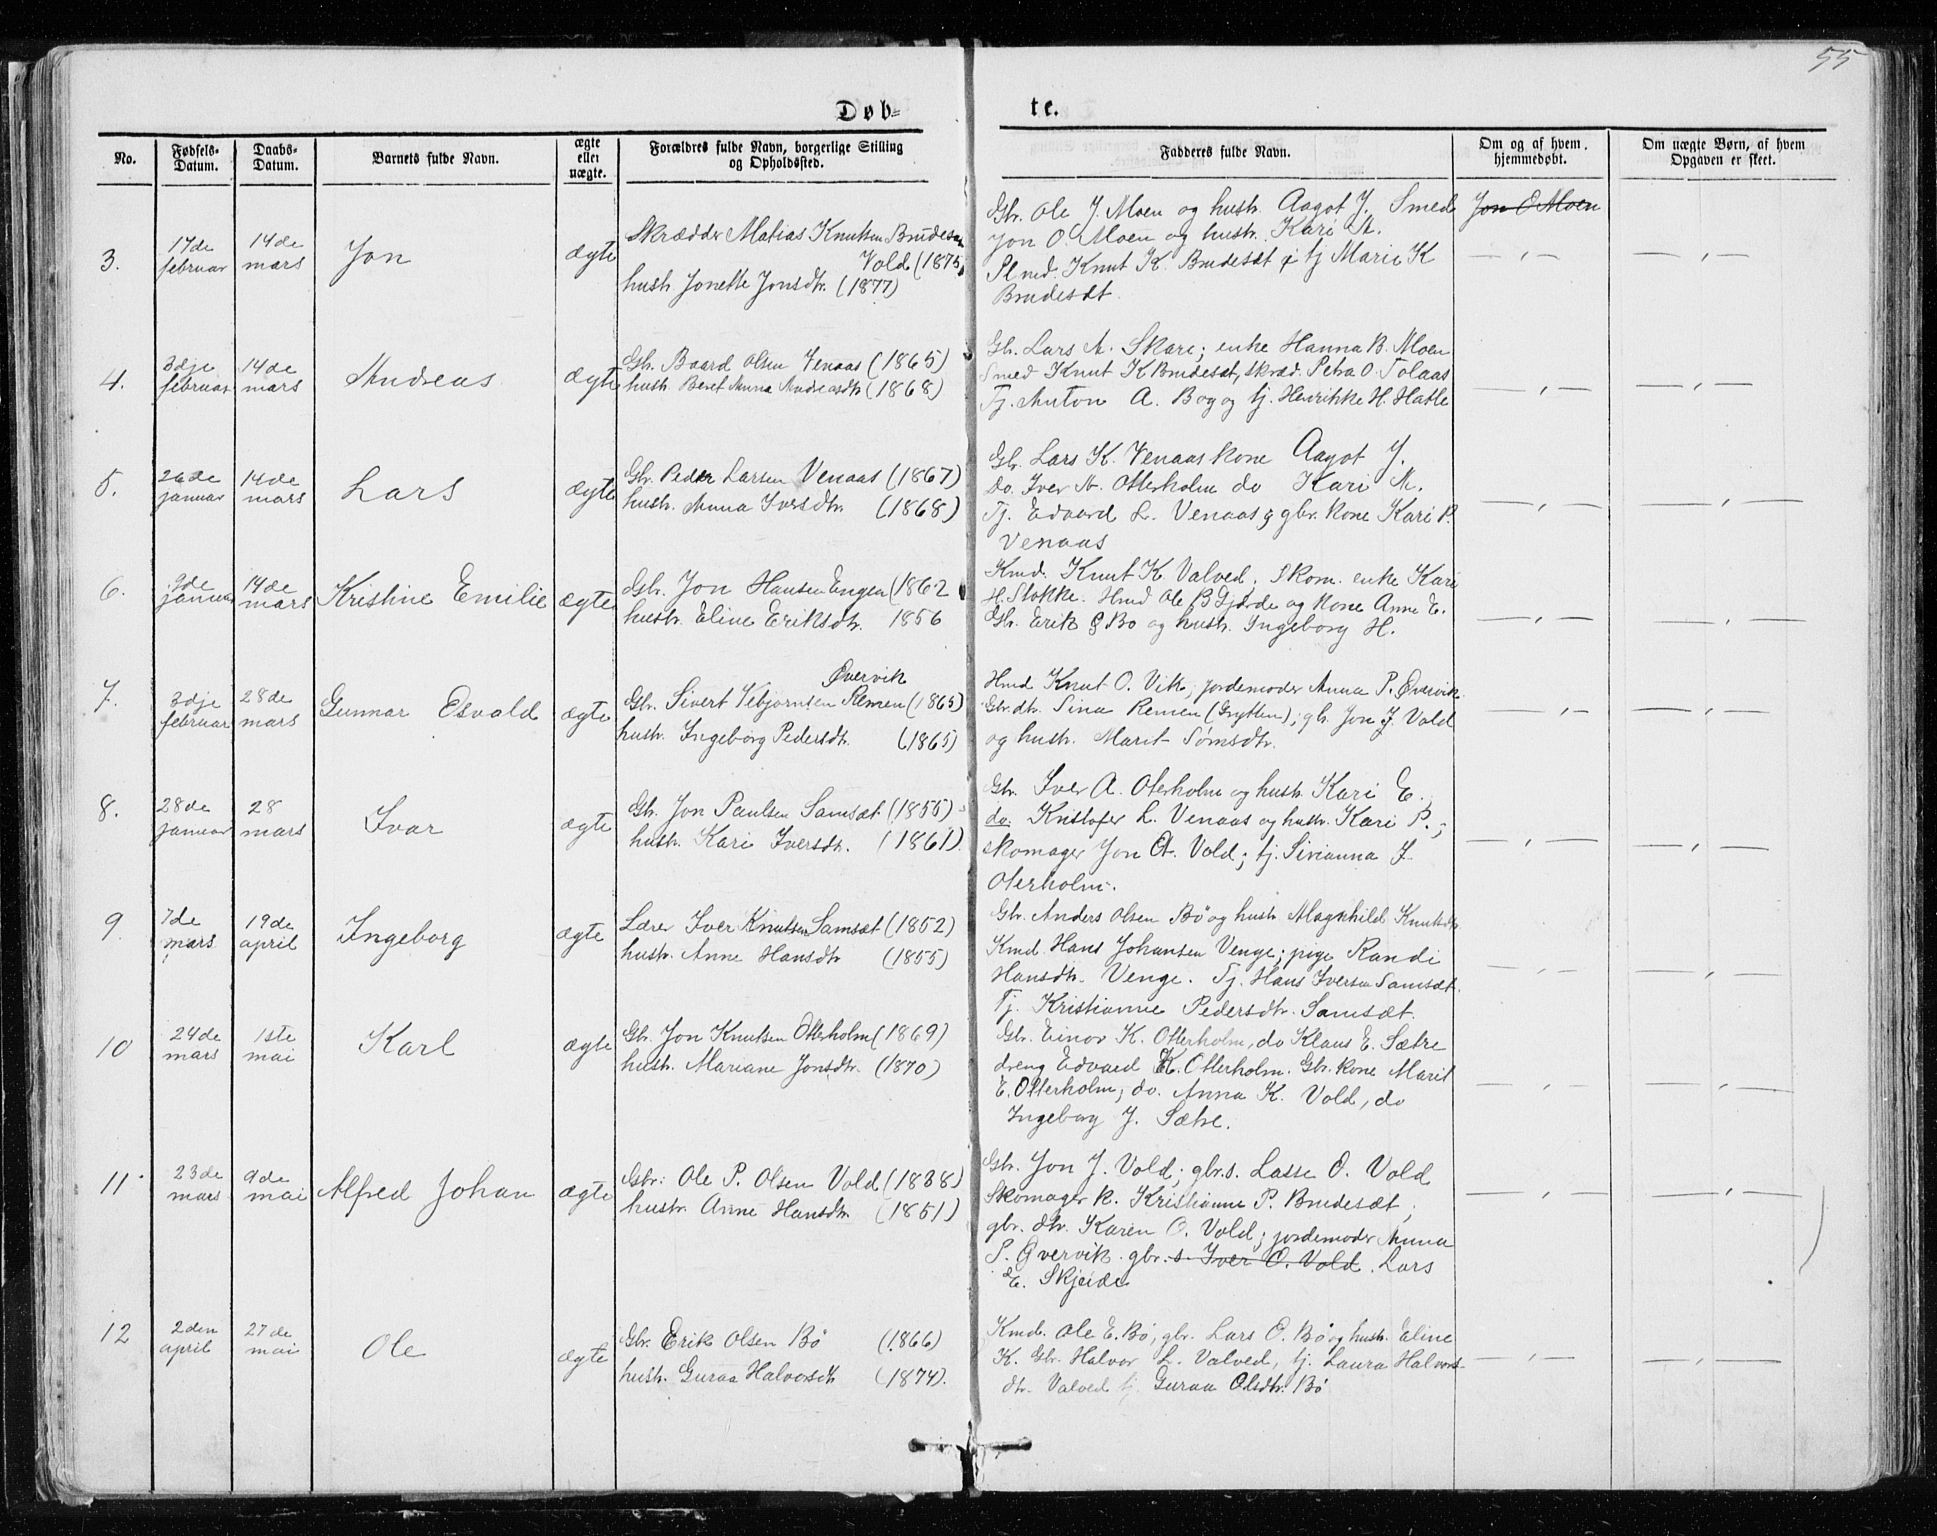 55
Døb= te.
No. Fødsels-Datum. Daabs-Datum. Barnets fulde Navn. ægte eller uægte. Forældres fulde Navn, borgerlige Stilling og Opholdssted. Fadderes fulde Navn. Om og af hvem hjemmedøbt. Om uægte Børn, af hvem Opgaven er skeet.
3. 17de februar 14de mars Jon ægte
Skrædder Matias Knutsen Brudesæt
Vold (1875)
hustr. Jonette Jonsdtr. (1877)
Gbr. Ole J. Moen og hustr. Aagot J. Smed
Jon O. Moen og hustr. Kari A.
Pl md. Knut K. Brudesæt tj Marie K
Brudesæt.
Jon O Moen
— , — — , —
4. 3dje februar 14de mars Andreas ægte
Gbr. Baard Olsen Venaas (1865)
hustr. Beret Anna Andreasdtr (1868)
Gbr. Lars A. Skare; enke Hanna B. Moen
Smed Knut K Brudesæt, skræd. Petra O. Tolaas
Tj. Anton A. Bog og tj. Henrikke H. Hatle
— , — — , —
5. 26de januar 14de mars Lars ægte
Gbr. Peder Larsen Venaas (1867)
hustr. Anna Iversdtr. (1868)
Gbr. Lars K. Venaas kone Aagot J.
Do. Iver A. Otterholm do Kari A.
Tj. Edvard L. Venaas g gbr. kone Kari P.
Venaas
— , — — , —
6. 9de januar 14de mars Kristine Emilie ægte
Gbr. Jon Hansen Engen (1862
hustr. Eline Eriksdtr. 1856
Kmd. Knut K. Valved. Skom. enke Kari
H. Stokke. Hmd Ole B Gjærde og kone Anne E.
Gbr. Erik Bø og hustr. Ingeborg H.
— , — — , —
7. 3dje februar 28de mars Gunnar Osvald ægte
Øvervik
Gbr. Sivert Vebjørnsen Remen (1865)
hustr. Ingeborg Pedersdtr. (1865)
Hmd Knut O. Vik; jordemoder Anna P. Øvervik
Gbr.dtr. Sina Remen (Grytten); gbr. Jon J. Vold
og hustr. Marit Tømsdtr.
— , — — , —
8. 28de januar 28 mars Ivar ægte
Gbr. Jon Paulsen Samsæt (1855)
hustr. Kari Iversdtr. (1861).
Gbr. Iver A. Oterholm og hustr. Kari E.
do. Kristofer L. Venaas og hustr. Kari P.;
skomager Jon A. Vold; tj. Sivianna J.
Oterholm.
— , — — , —
9 7de mars 19de april Ingeborg ægte
Lærer Iver Knutsen Samsæt (1852)
hustr. Anne Hansdtr (1855)
Gbr. Anders Olsen Bø og hustr Magnhild Knutsdtr
Kmd. Hans Johansen Venge; pige Randi
Hansdtr. Venge. Tj. Hans Iversen Samsæt.
Tj. Kristianne Pedersdtr. Samsæt.
— , — — , —
10 24de mars 1ste mai Karl ægte
Gbr. Jon Knutsen Otterholm (1869)
hustr. Mariane Jonsdtr. (1870)
Gbr. Einov K. Otterholm, do Klaus E. Sætre
dreng Edvard K. Otterholm. Gbr. kone Marit
E. Otterholm; do. Anna K. Vold, do
Ingeborg J. Sætre.
— , — — , —
11 23de mars 9de mai Alfred Johan ægte
Gbr: Ole P. Olsen Vold (1838)
hustr. Anne Hansdtr. (1851)
Gbr. Jon J. Vold; gbr.s. Lasse O. Vold
Skomager k. Kristianne P. Brudesæt,
gbr. dtr. Karen O. Vold; jordemoder Anna
P. Øvervik. gbr. s. Iver O. Vold. Lars
E. Skjeide
— , — — , —
12 2den april 27de mai Ole ægte
Gbr. Erik Olsen Bø (1866)
hustr. Guraa Halvorsdtr (1874).
Kmd. Ole E. Bø; gbr. Lars O. Bø og hustr. Eline
K. Gbr. Halvor L. Valved, tj. Laura Halvors-
dtr. Valved tj Guraa Olsdtr. Bø
— , — — , —